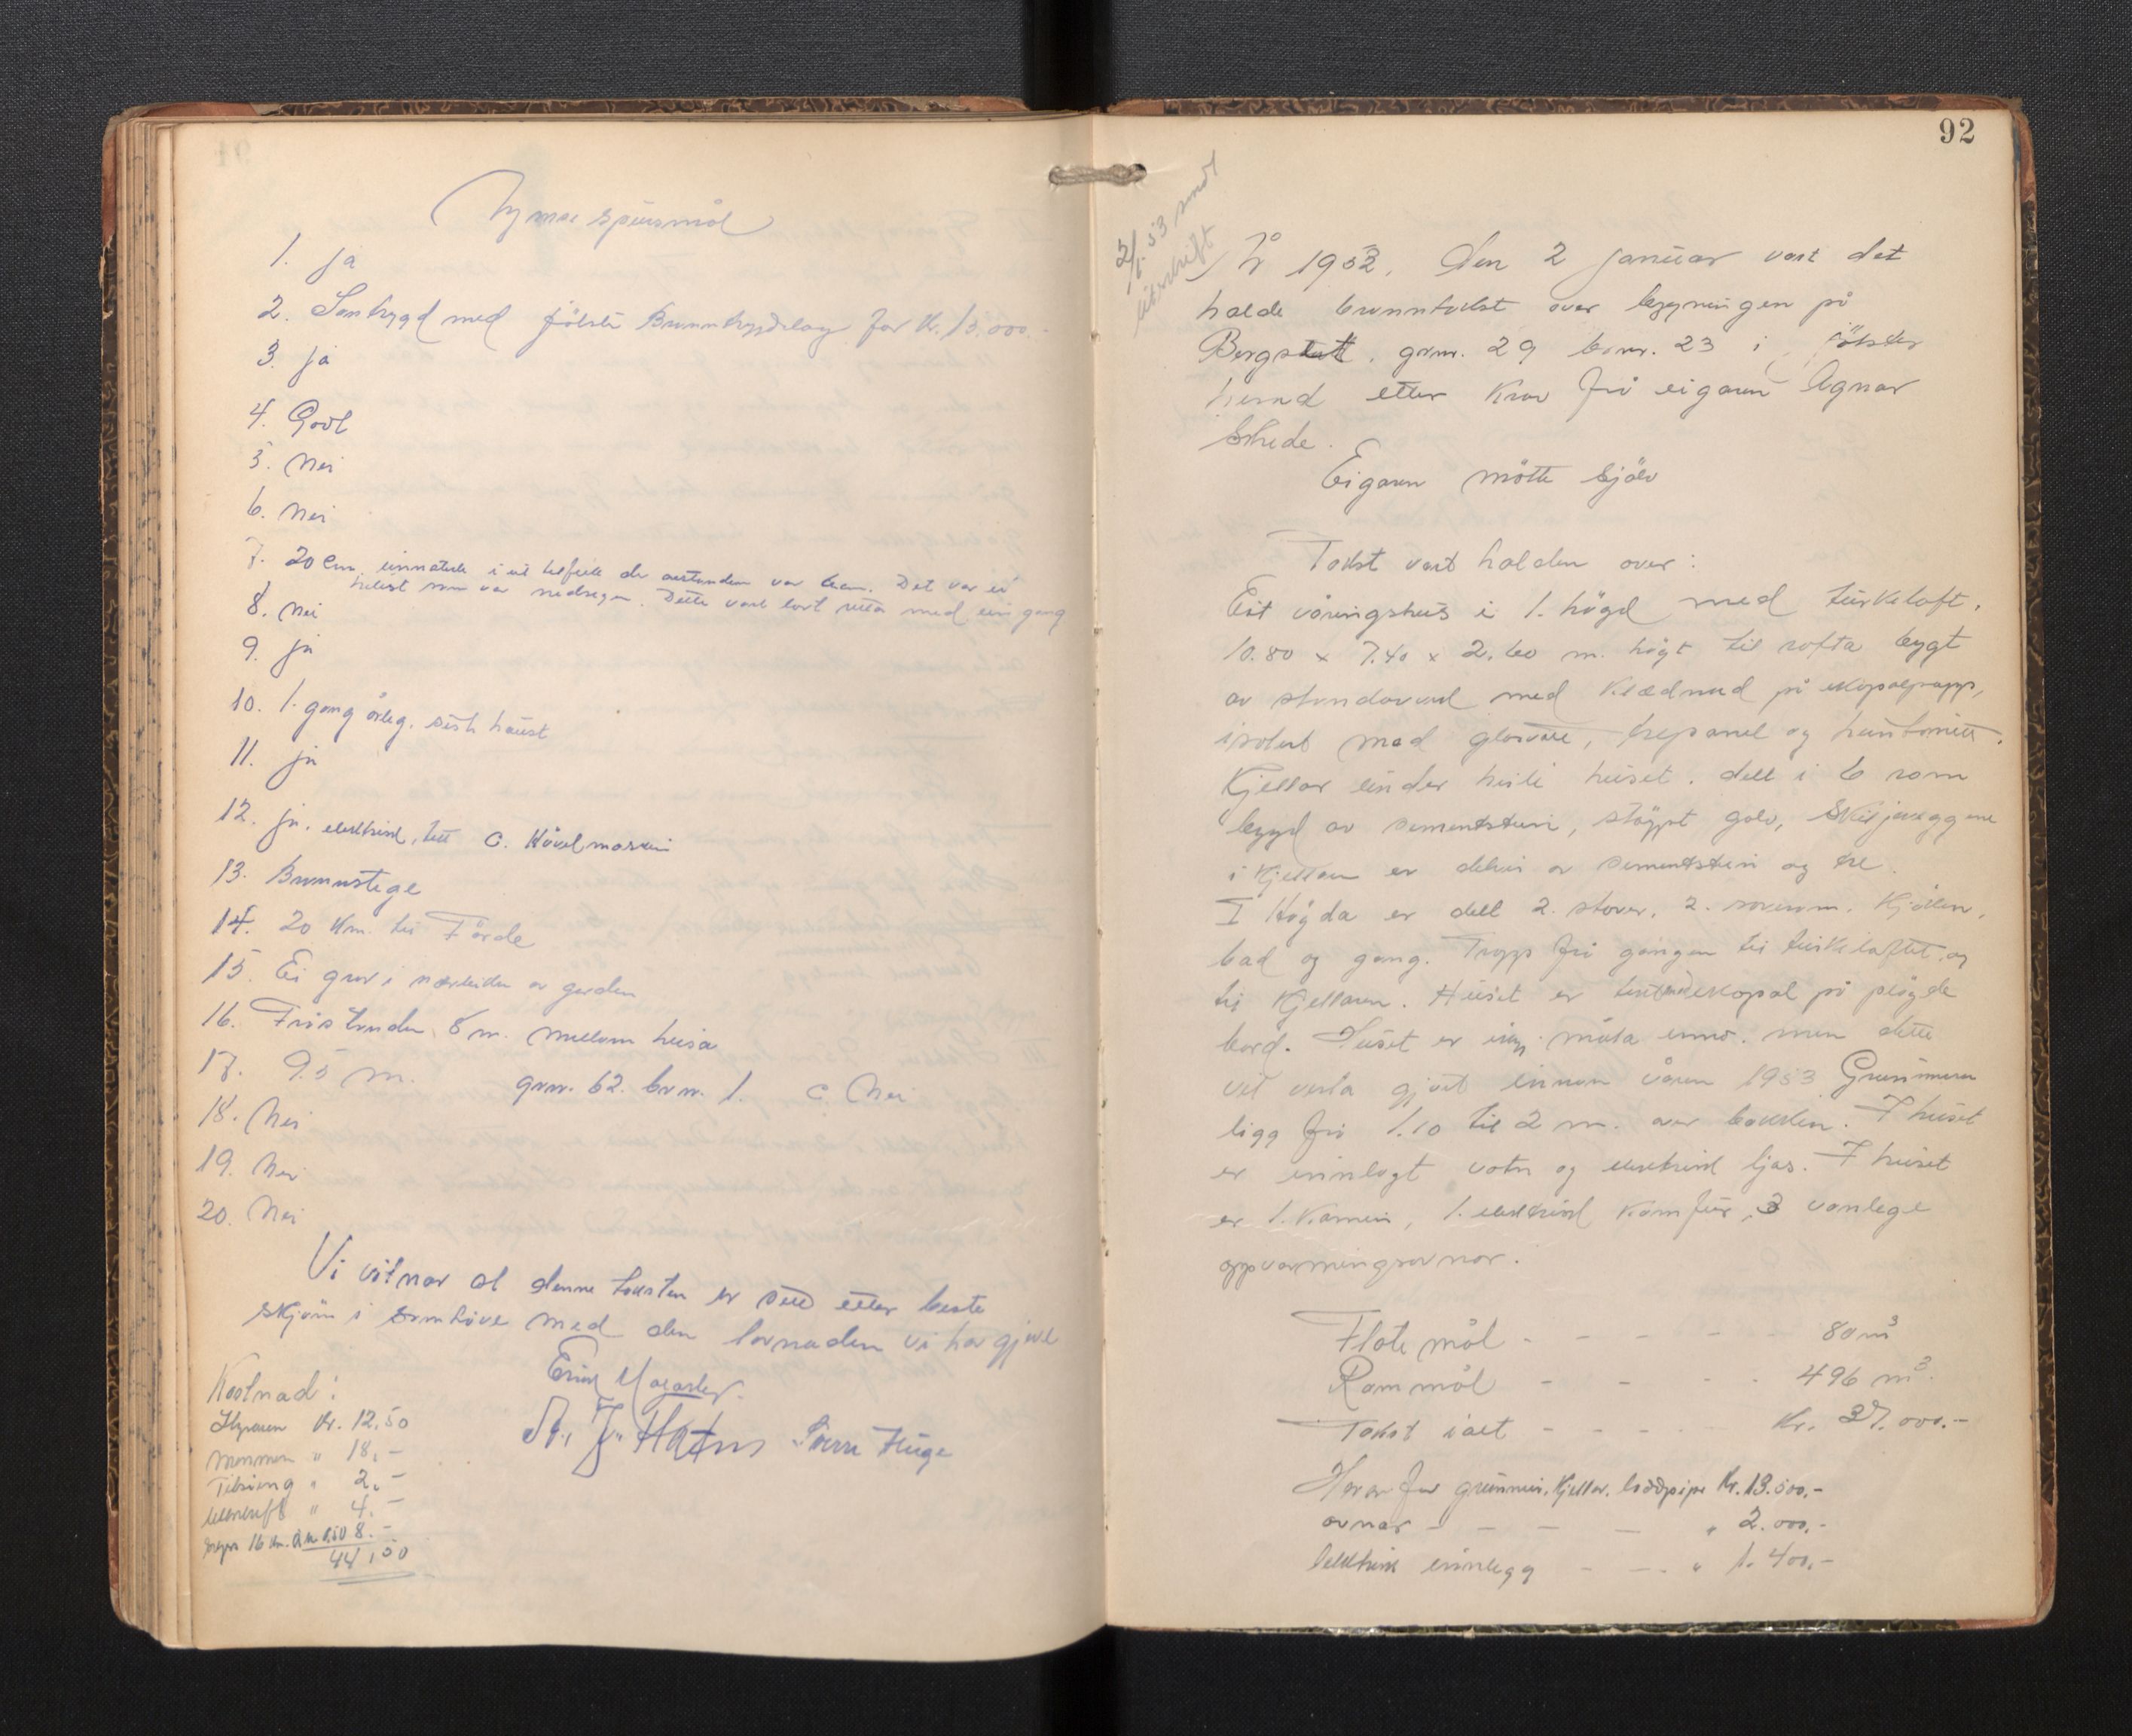 Ymse spursmål
1. ja
2. Samtrygd med Jölster Brunntrygdelag for kr. 13,000.-
3. ja
4. Godt
5. Nei
6. Nei
7. 20 cm. i eit tilfelle der avstanden var Det var ei
som var nedsegen. Dette vart med ein gang
8. Nei
9. ja
10. 1. gong årleg. sist haust
11. ja
12. ja. elektrisk, tett c. Hövelmaskin
13. Brunnstege
14. 20 km. til Förde
15. Ei grov i nærleiden av garden
16. Fråstanden 8 m. mellom husa
17. 95 m. gnr. 62. brnr. 1. c. Nei
18. Nei
19. Nei
20. Nei
Vi vitnar at denne taksten er sett etter beste
skjön i samhöve med den lovnaden vi har gjeve
Kostnad:
Styraren Kr. 12,50
Mennene " 18,-
Tilsieng " 2,-
Utskrift " 4.-
16 km. a kr 0,50 8.-
44,50
92
2/1. 53 sendt
utskrift
År 1953. Den 2 januar vart det
halde brunntakst over bygningen på
Bergstatt. gnr. 29 brnr. 23 i Jölster
herad etter krav frå eigaren Agnar
Skrede.
Eigaren mötte sjölv
Takst vart halden over:
Eit våningshus i 1. högd med turkeloft.
10.80 x 7.40 x 2.60 m. högt til rofta bygt
av standarverk med klædnad på ekopalpapp,
isolert med glasvatt, trepanel og huntonitt.
Kjellar under heile huset. delt i 6 rom
bygd av sementstein, stöypt golv, skiljeveggene
i kjellaren er delvis av sementstein og tre.
I högda er delt 2. stover. 2. soverom. Kjöken,
bad og gang. Tropp frå gangen til turkeloftet og
til kjellaren. Huset er tekt med ekopal på plögde
bord. Huset er ikkje måla enno. men dette
vil verta gjort innan våren 1953 Grunnmuren
ligg frå 1.10 til 2 m. over bakken. I huset
er innlagt vatn og elektrisk ljos. I huset
er 1. Kamin, 1. elektrisk komfur, 3 vanlege
oppvarmingsovnar.
Flate mål - - - - - 80 m³
Rommål - - - - 496 m³.
Takst i alt - - - - Kr. 37.000.-
Herav for grunnmur, Kjellar, loddpipe Kr. 13.500,-
ovnar - - - - " 2.000,-
elektrisk innlegg - - - " 1.400,-